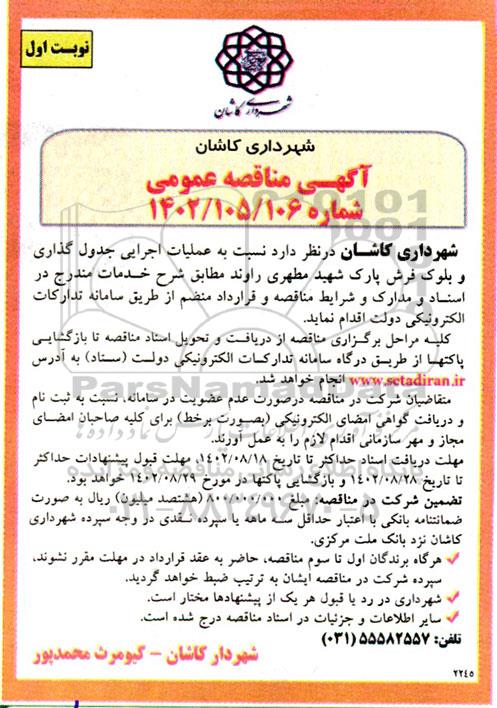 نوبت اول
شهرداری کاشان
شهرداری کاشان
آگهی مناقصه عمومی
شماره ۱۴۰۲/۱۰۵/۱۰۶
شهرداری کاشان درنظر دارد نسبت به عملیات اجرایی جدول گذاری
و بلوک فرش پارک شهید مطهری راوند مطابق شرح خدمات مندرج در
اسناد و مدارک و شرایط مناقصه و قرارداد منضم از طریق سامانه تدارکات
الکترونیکی دولت اقدام نماید.
کلیه مراحل برگزاری مناقصه از دریافت و تحویل اسناد مناقصه تا بازگشایی
پاکتها از طریق درگاه سامانه تدارکات الکترونیکی دولت (ستاد) به آدرس
www.setadiran.ir انجام خواهد شد.
متقاضیان شرکت در مناقصه درصورت عدم عضویت در سامانه، نسبت به ثبت نام
و دریافت گواهی امضای الکترونیکی (بصورت برخط) برای کلیه صاحبان امضای
مجاز و مهر سازمانی اقدام لازم را به عمل آورند.
مهلت دریافت اسناد حداکثر تا تاریخ ۱۴۰۲/۰۸/۱۸، مهلت قبول پیشنهادات حداکثر
تا تاریخ ۱۴۰۲/۰۸/۲۸ و بازگشایی پاکتها در مورخ ۱۴۰۲/۰۸/۲۹ خواهد بود.
تضمین شرکت در مناقصه: مبلغ ۸۰۰/۰۰۰/۰۰۰ (هشتصد میلیون) ریال به صورت
ضمانتنامه بانکی با اعتبار حداقل سه ماهه یا سپرده نقدی در وجه سپرده شهرداری
کاشان نزد بانک ملت مرکزی.
هرگاه برندگان اول تا سوم مناقصه، حاضر به عقد قرارداد در مهلت مقرر نشوند،
سپرده شرکت در مناقصه ایشان به ترتیب ضبط خواهد گردید.
شهرداری در رد یا قبول هر یک از پیشنهادها مختار است.
سایر اطلاعات و جزئیات در اسناد مناقصه درج شده است.
تلفن: ۵۵۵۸۲۵۵۷ (۰۳۱)
شهردار کاشان - کیومرث محمدپور
۲۲۴۵